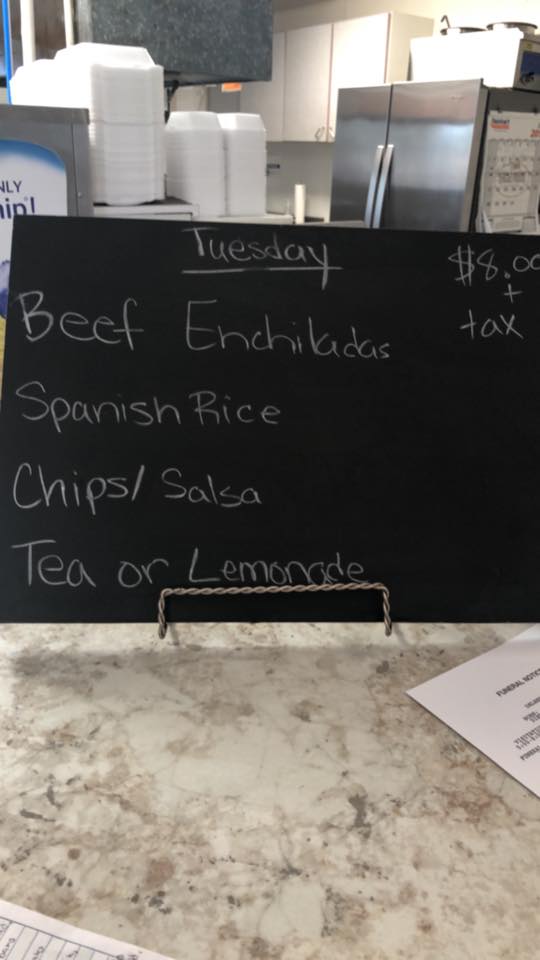 NLY
hip!
Tuesday
$8.00
+
tax
Beef Enchiladas
Spanish Rice
Chips/ Salsa
Tea or Lemonade
FUNERAL NOTIC